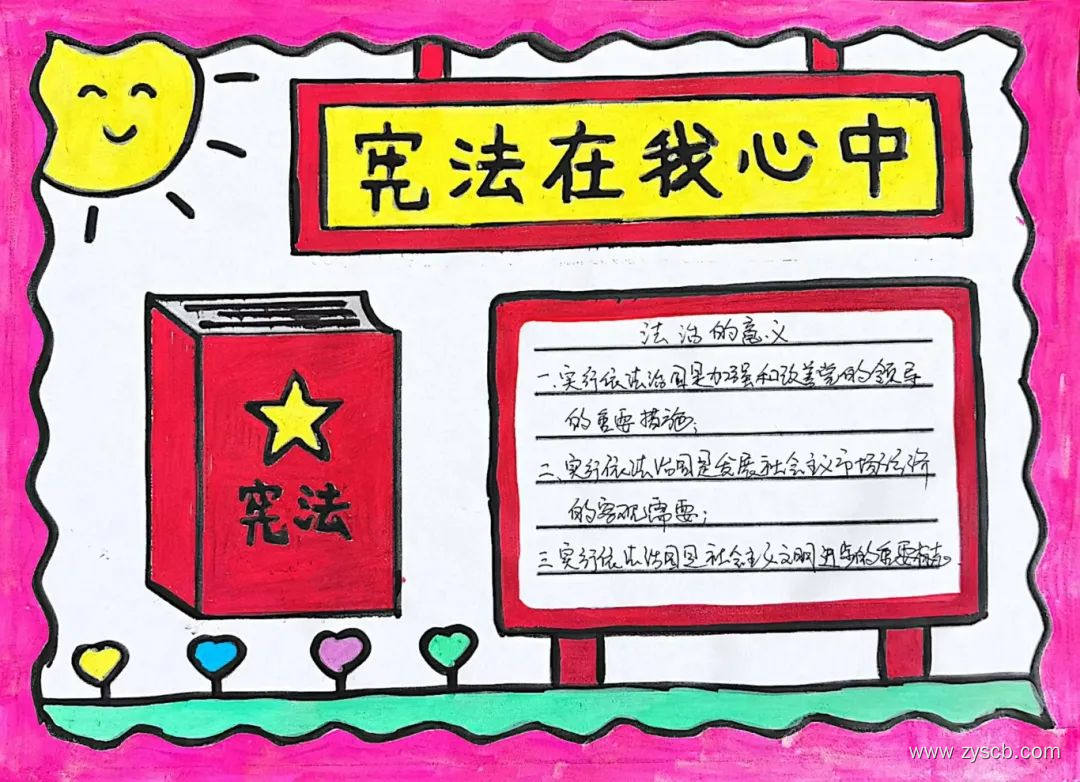 宪法在我心中
宪法
法治的意义
一、实行依法治国是加强和改善党的领导
的重要措施；
二、实行依法治国是发展社会主义市场经济
的客观需要；
三、实行依法治国是社会主义文明进步的重要标志.
www.zyscb.com